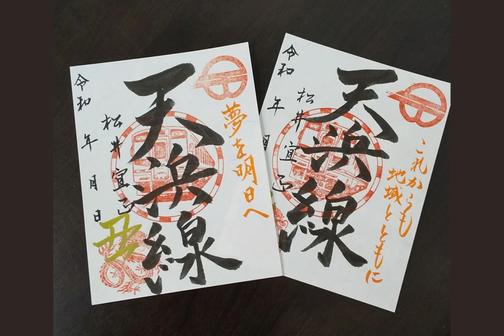 夢を明日へ
天浜線
松井宜正
令和 年 月 日
これからも
地域とともに
天浜線
松井宜正
令和 年 月